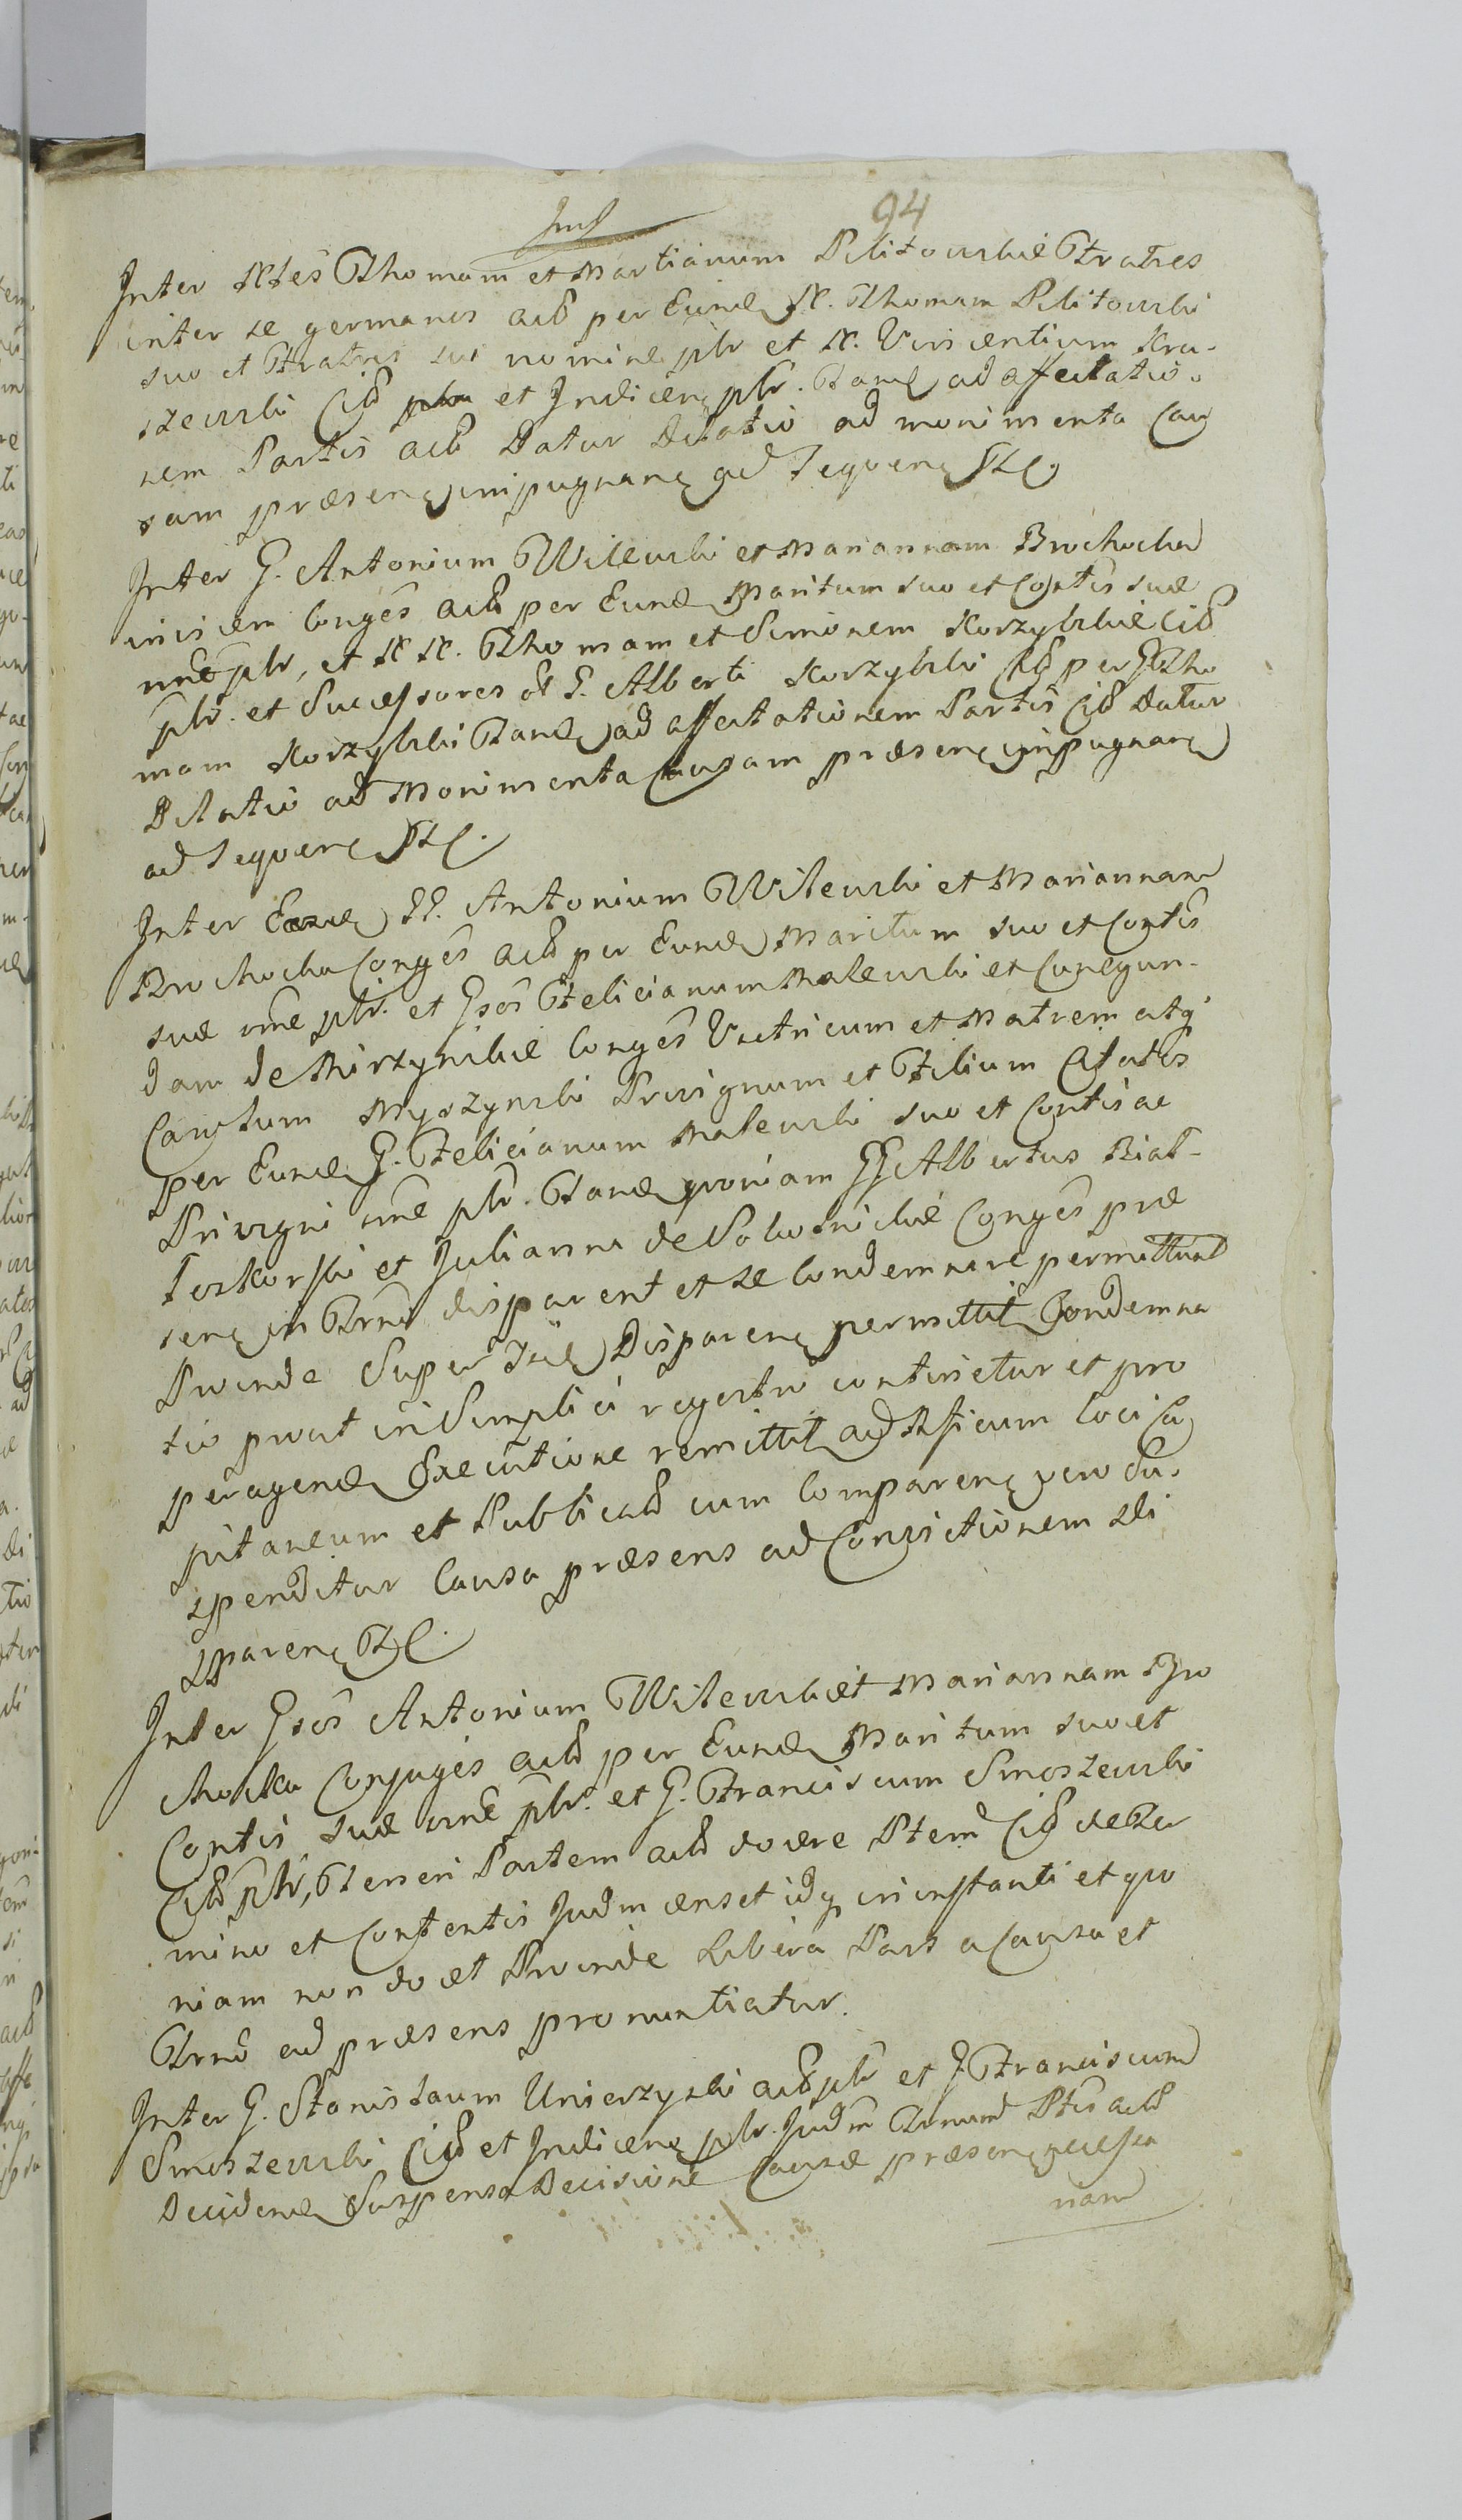 94
Inter Nbles Thomam et Martianum Pilitowskie Fratres
inter se germanos act per Eund N. Thomam Pilitowski
suo et Fratris sui nomine plr et N. Vincentium Kra-
szewski Cit et Indicen plr. Tand ad affectatio-
nem Partis act Datur Dilatio ad monimenta Cau
sam præsen impugnan ad sequen
Inter G. Antonium Wilewski et Mariannam Brochocka
invicem Conges act per Eund Maritum suo et Contis suæ
nne plr, et N N. Thomam et Simonem Korzybskie Cit
plr. et Successores ol G. Alberti Korzybski Cit per G Tho
mam Korzybski Tand ad affectationem Partis Cit datur
Dilatio ad Monimenta Causam præsen impugnan
ad sequen
Inter Eosd GG. Antonium Wilewski et Mariannam
Brochocka Conges act per Eund Maritum suo et Contis
suæ nne plr. et Gsos Felicianum Malewski et Cunegun-
dam de Mirzynskie Conges Vitricum et Matrem atq
Carolum Myszynski Privignum et Filium Citatos
per Eund G. Felicianum Malewski suo et Contis ac
Privigni nne plr. Tand quoniam GG Albertus Biał-
łoskorski et Julianna de Sokolnickie Conges præ
sen in Trno disparent et se Condemnare permittunt
Proinde Super Iisd Disparen permittit Condemna
tio prout in Simplici regestro continetur et pro
peragend Executione remittit ad Offcium Loci Ca
pitaneum et Publicat cum Comparen vero Su-
spenditur Causa præsens ad Convictionem Di
sparen
Inter Gsos Antonium Wilewski et Mariannam Bro
chocka Conjuges act per Eund Maritum suo et
Contis suæ nne plr. et G. Franciscum Smoszewski
Cit plr, Teneri Partem act docere Ptem Cit de Ter
mino et Contentis Judm censet idq in instanti et quo
niam non docet Proinde Libera Pars a Causa et
Trno ad præsens pronuntiatur.
Inter G. Stanislaum Unierzyski act plr et G Franciscum
Smoszewski Cit et Indicen plr. Judm Trnum Ptis act
Decidend Suspensa Decisione Causæ præsen necessa
riam